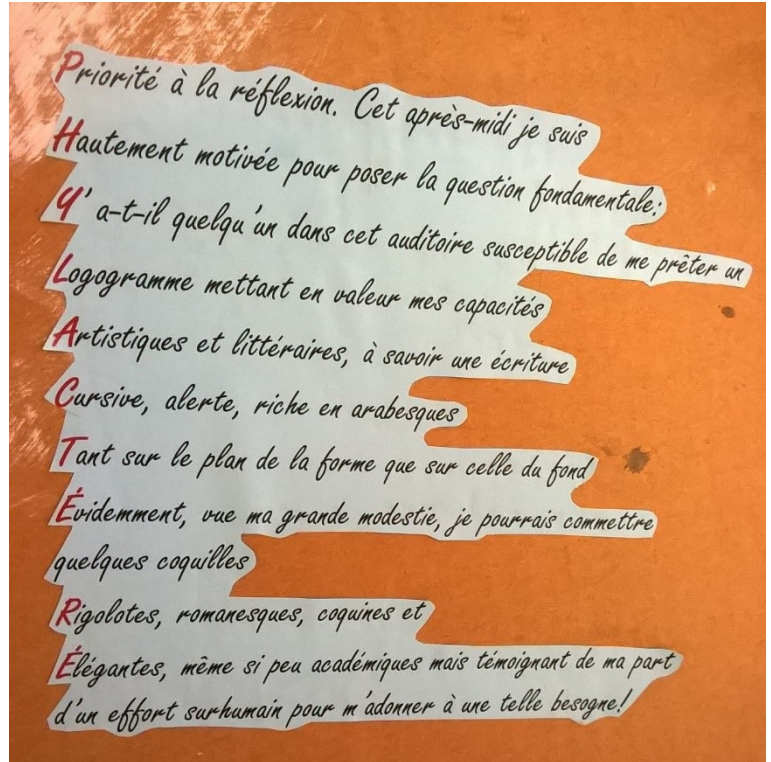 Priorité à la réflexion. Cet après-midi je suis
Hautement motivée pour poser la question fondamentale:
Y' a-t-il quelqu'un dans cet auditoire susceptible de me prêter un
Logogramme mettant en valeur mes capacités
Artistiques et littéraires, à savoir une écriture
Cursive, alerte, riche en arabesques
Tant sur le plan de la forme que sur celle du fond
Évidemment, vue ma grande modestie, je pourrais commettre
quelques coquilles
Rigolotes, romanesques, coquines et
Élégantes, même si peu académiques mais témoignant de ma part
d'un effort surhumain pour m'adonner à une telle besogne!